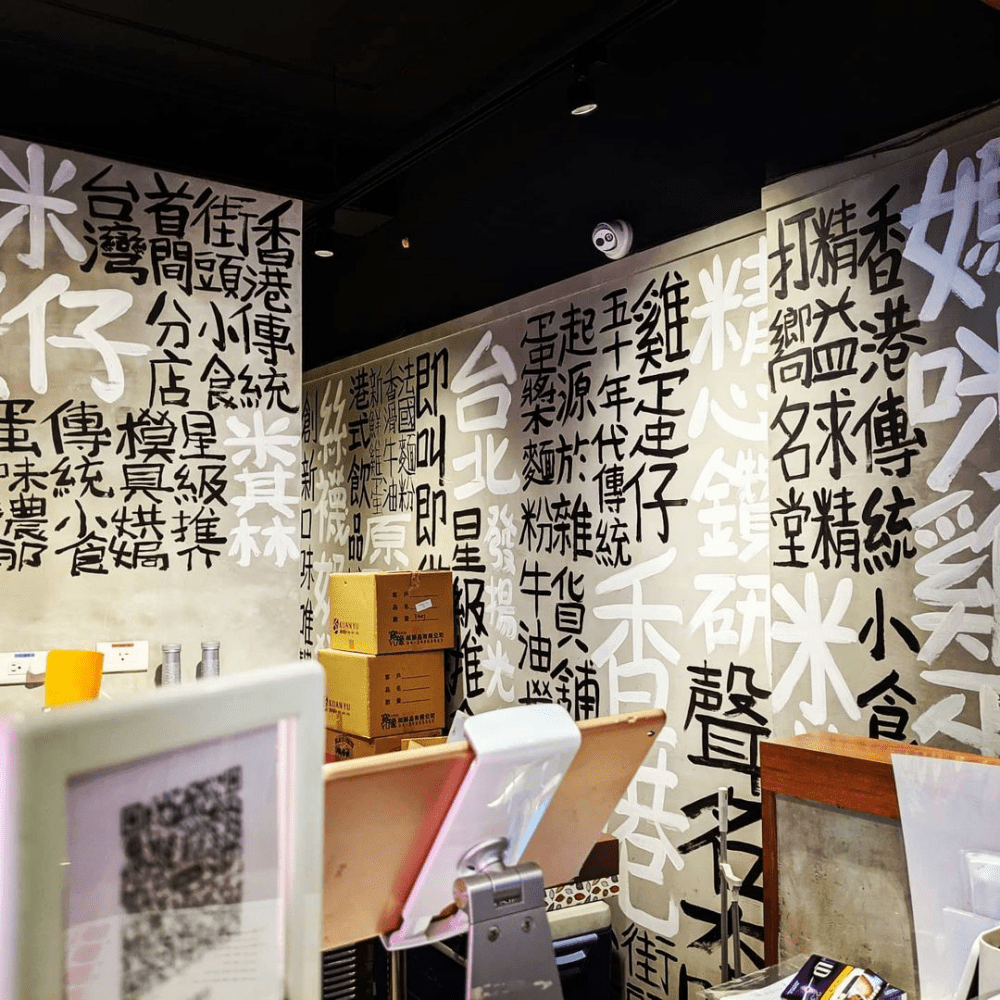 媽咪雞
香港傳統小食
精益求精
打響名堂
米
精心鑽研
聲名
雞疍仔
香港
街
五十年代傳統
起源於雜貨舖
蛋漿麵粉牛油
台北
發揚光
星級推
即叫即
法國麵粉
香滑牛油
新鮮雞蛋
原
港式飲品
絲襪奶
創新口味
香港傳統
街頭小食
首間分店
台灣
米
仔
米其林
星級推
模具焗
傳統小食
蛋味濃郁
KUANYU
KUANYU